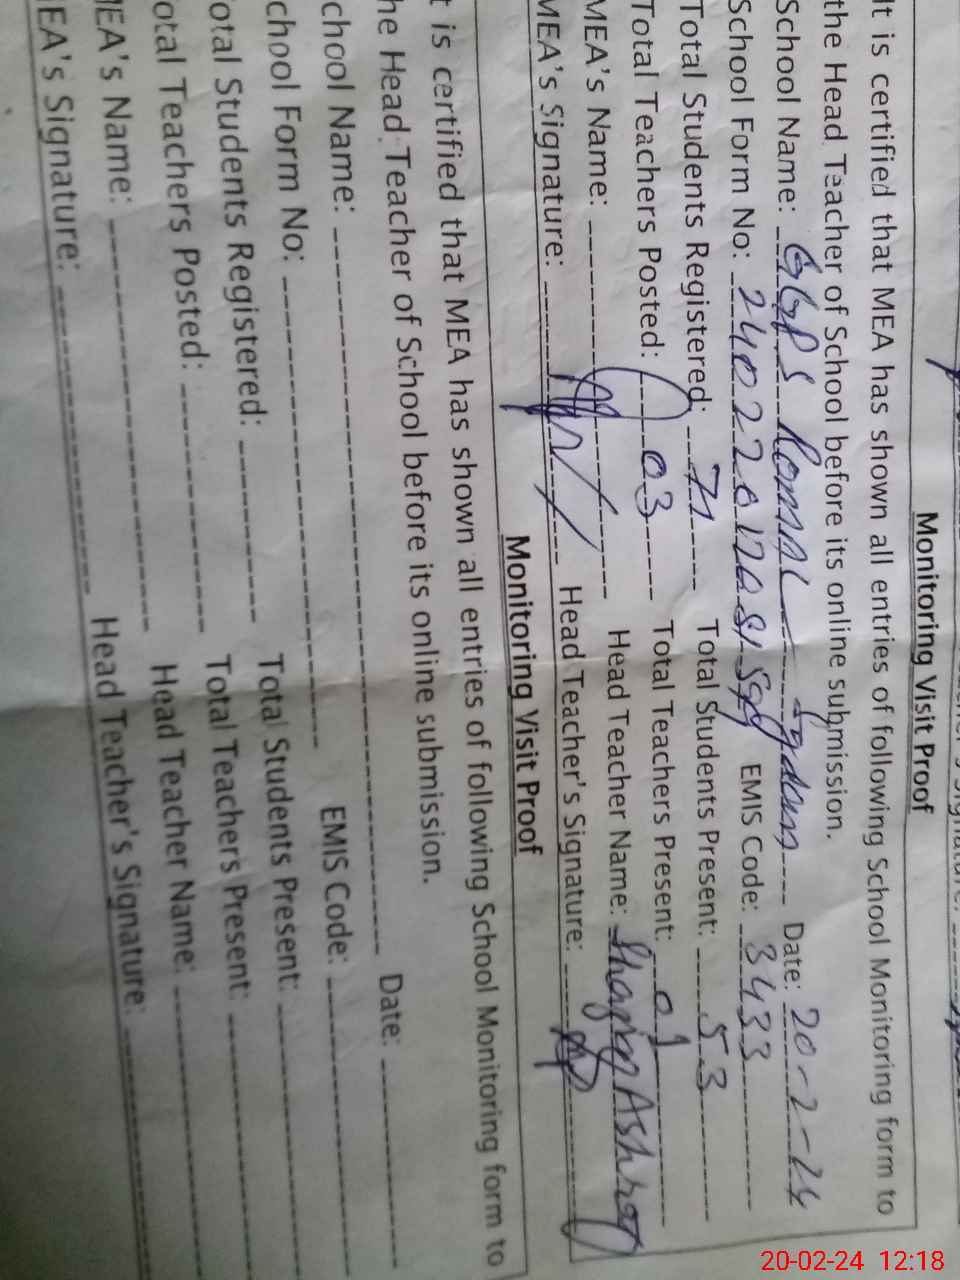 Monitoring Visit Proof
It is certified that MEA has shown all entries of following School Monitoring form to
the Head Teacher of School before its online submission.
School Name: GGPS Date: 20-2-24
School Form No: EMIS Code: 3433
Total Students Registered: 71 Total Students Present: 53
Total Teachers Posted: 03 Total Teachers Present: 01
MEA's Name: Head Teacher Name: Ashraf
MEA's Signature: Head Teacher's Signature:
Monitoring Visit Proof
t is certified that MEA has shown all entries of following School Monitoring form to
he Head Teacher of School before its online submission.
chool Name: Date:
chool Form No: EMIS Code:
otal Students Registered: Total Students Present:
otal Teachers Posted: Total Teachers Present:
MEA's Name: Head Teacher Name:
MEA's Signature: Head Teacher's Signature:
20-02-24 12:18